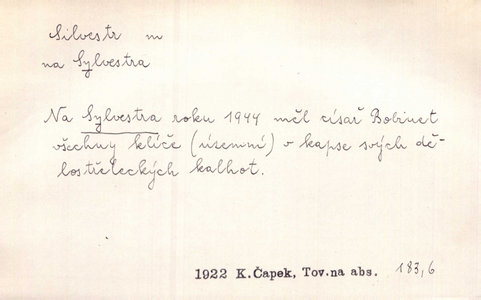 Silvestr m
na Sylvestra
Na Sylvestra roku 1944 měl císař Bobinet
všechny klíče (územní) v kapse svých dě-
lostřeleckých kalhot.
1922 K.Čapek, Tov.na abs. 183,6